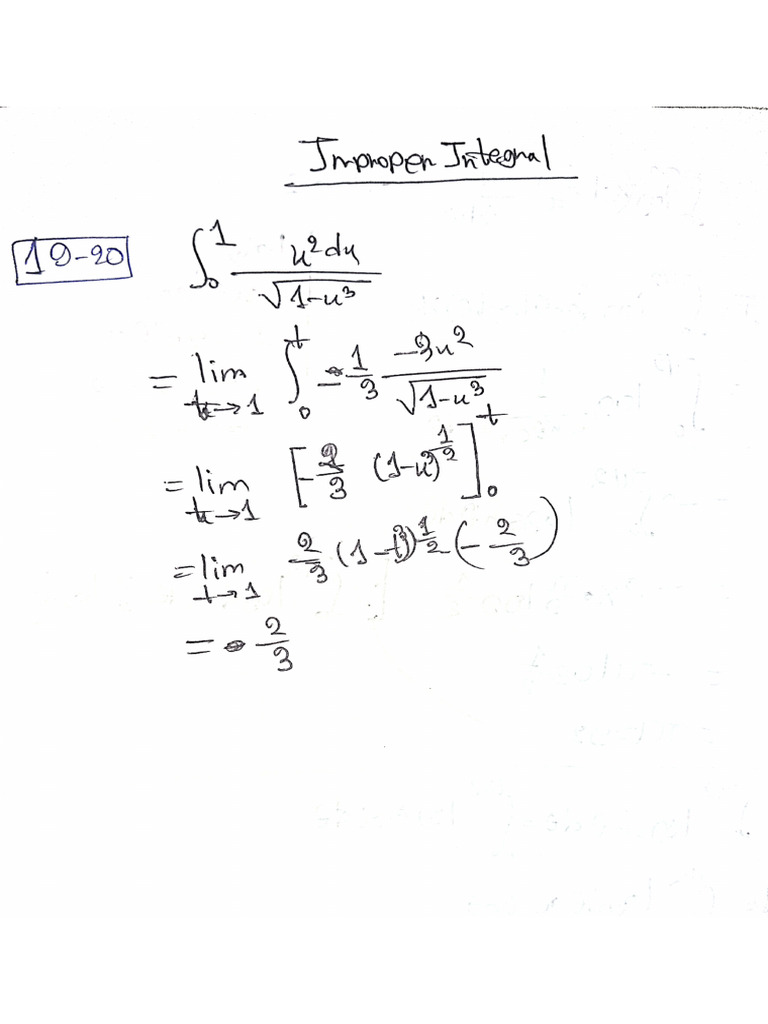 Improper Integral
19-20 ∫₀¹ x²dx / √(1-x³)
= lim t→1 ∫₀ᵗ -1/3 -3x² / √(1-x³)
= lim t→1 [-2/3 (1-x³)^(1/2)]₀ᵗ
= lim t→1 2/3 (1-t³)^(1/2) (-2/3)
= 2/3